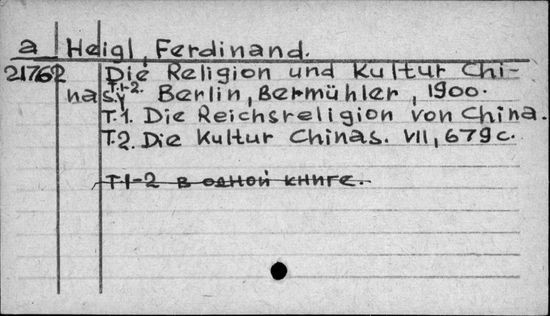 a Heigl, Ferdinand.
21762 Die Religion und Kultur Chi-
nas. T.1-2. Berlin, Bermühler, 1900.
T.1. Die Reichsreligion von China.
T.2. Die Kultur Chinas. VII, 679 с.
T 1-2 в одной книге.